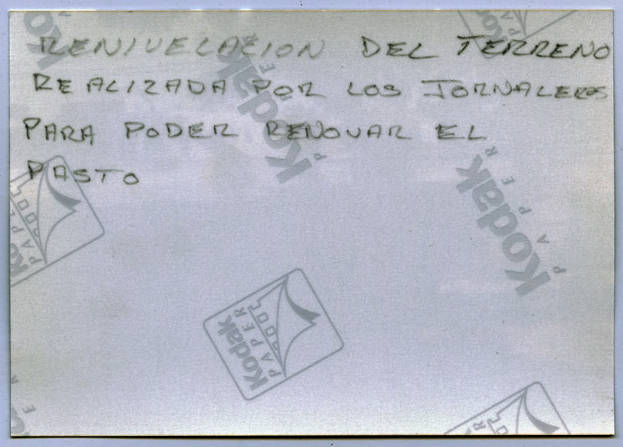 RENIVELACION DEL TERRENO
REALIZADA POR LOS JORNALEROS
PARA PODER RENOVAR EL
PASTO
Kodak
PAPER
Kodak
PAPER
Kodak
PAPER
Kodak
PAPER